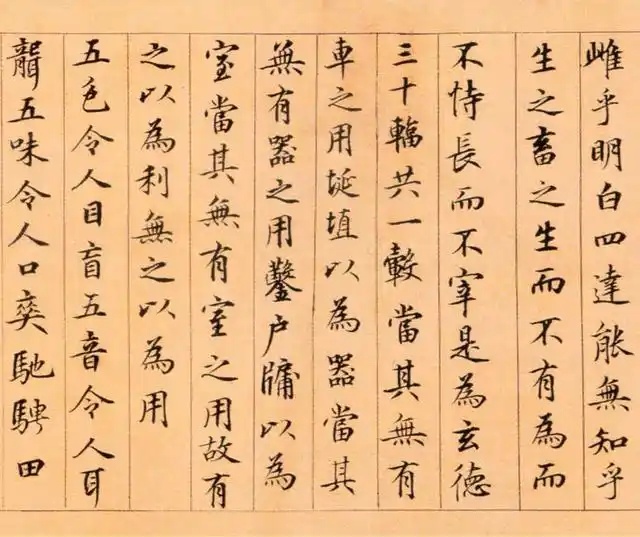 雌乎明白四達能無知乎
生之畜之生而不有為而
不恃長而不宰是為玄德
三十輻共一轂當其無有
車之用埏埴以為器當其
無有器之用鑿户牖以為
室當其無有室之用故有
之以為利無之以為用
五色令人目盲五音令人耳
聾五味令人口爽馳騁田